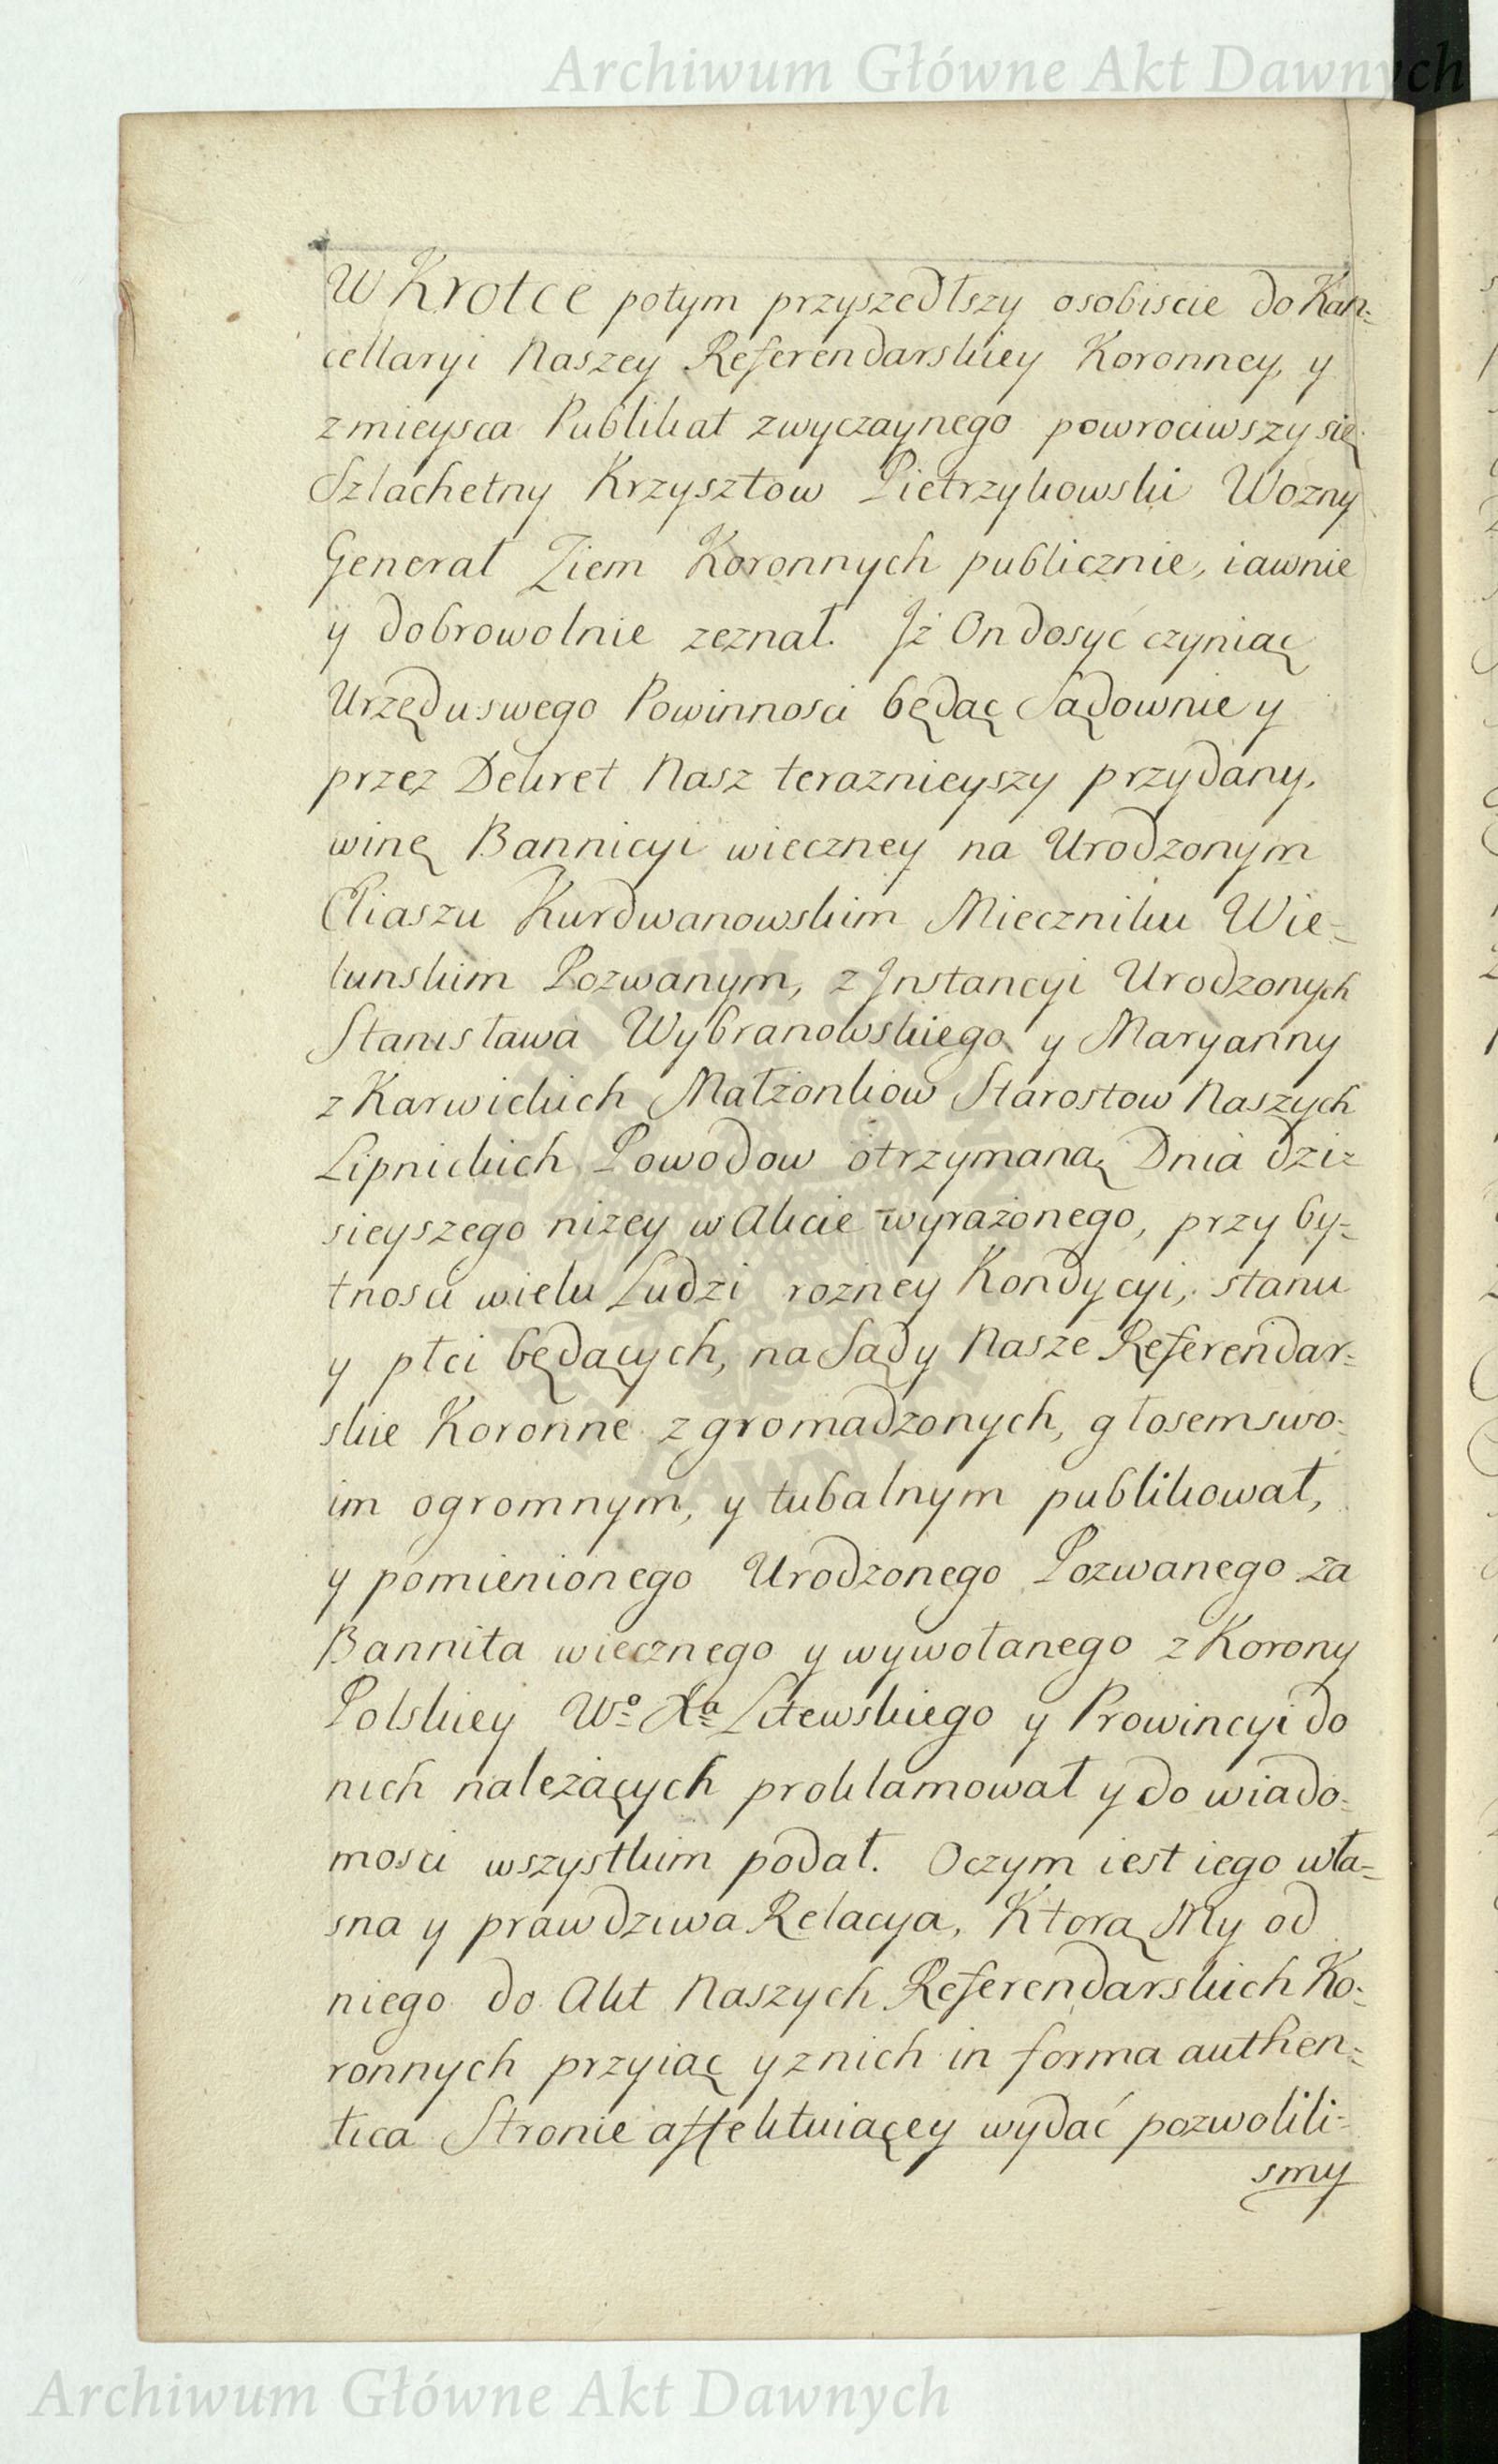 Archiwum Główne Akt Dawnych
W Krotce potym przyszedłszy osobiscie do Kan-
cellaryi Naszey Referendarskiey Koronney, y
z mieysca Publikat zwyczaynego powrociwszy się
Szlachetny Krzysztow Pietrzykowski Wozny
Generał Ziem Koronnych publicznie, iawnie
y dobrowolnie zeznał. Iż On dosyć czyniąc
Urzędu swego Powinnosci będąc Sądownie y
przez Dekret Nasz teraznieyszy przydany,
winę Bannicyi wieczney na Urodzonym
Eliaszu Kurdwanowskim Mieczniku Wie-
lunskim Pozwanym, z Instancyi Urodzonych
Stanisława Wybranowskiego y Maryanny
z Karwickich Małżonkow Starostow Naszych
Lipnickich Powodow otrzymaną Dnia dzi-
sieyszego niżey w Akcie wyrażonego, przy by-
tnosci wielu Ludzi rozney Kondycyi, stanu
y płci będących, na Sądy Nasze Referendar-
skie Koronne zgromadzonych, głosem swo-
im ogromnym, y tubalnym publikował,
y pomienionego Urodzonego Pozwanego za
Bannita wiecznego y wywołanego z Korony
Polskiey Wo Xa Litewskiego y Prowincyi do
nich należących proklamował y do wiado-
mosci wszystkim podał. O czym iest iego wła-
sna y prawdziwa Relacya, Ktorą My od
niego do Akt Naszych Referendarskich Ko-
ronnych przyiąc y z nich in forma authen-
tica Stronie affektuiącey wydać pozwolili-
smy
Archiwum Główne Akt Dawnych